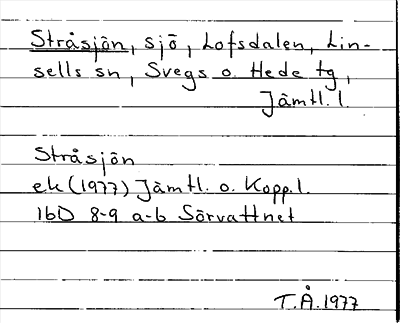 Stråsjön, sjö, Lofsdalen, Lin-
sells sn, Svegs o. Hede tg,
Jämtl. l.
Stråsjön
ek (1977) Jämtl. o. Kopp. l.
16D 8-9 a-b Sörvattnet
T.Å. 1977